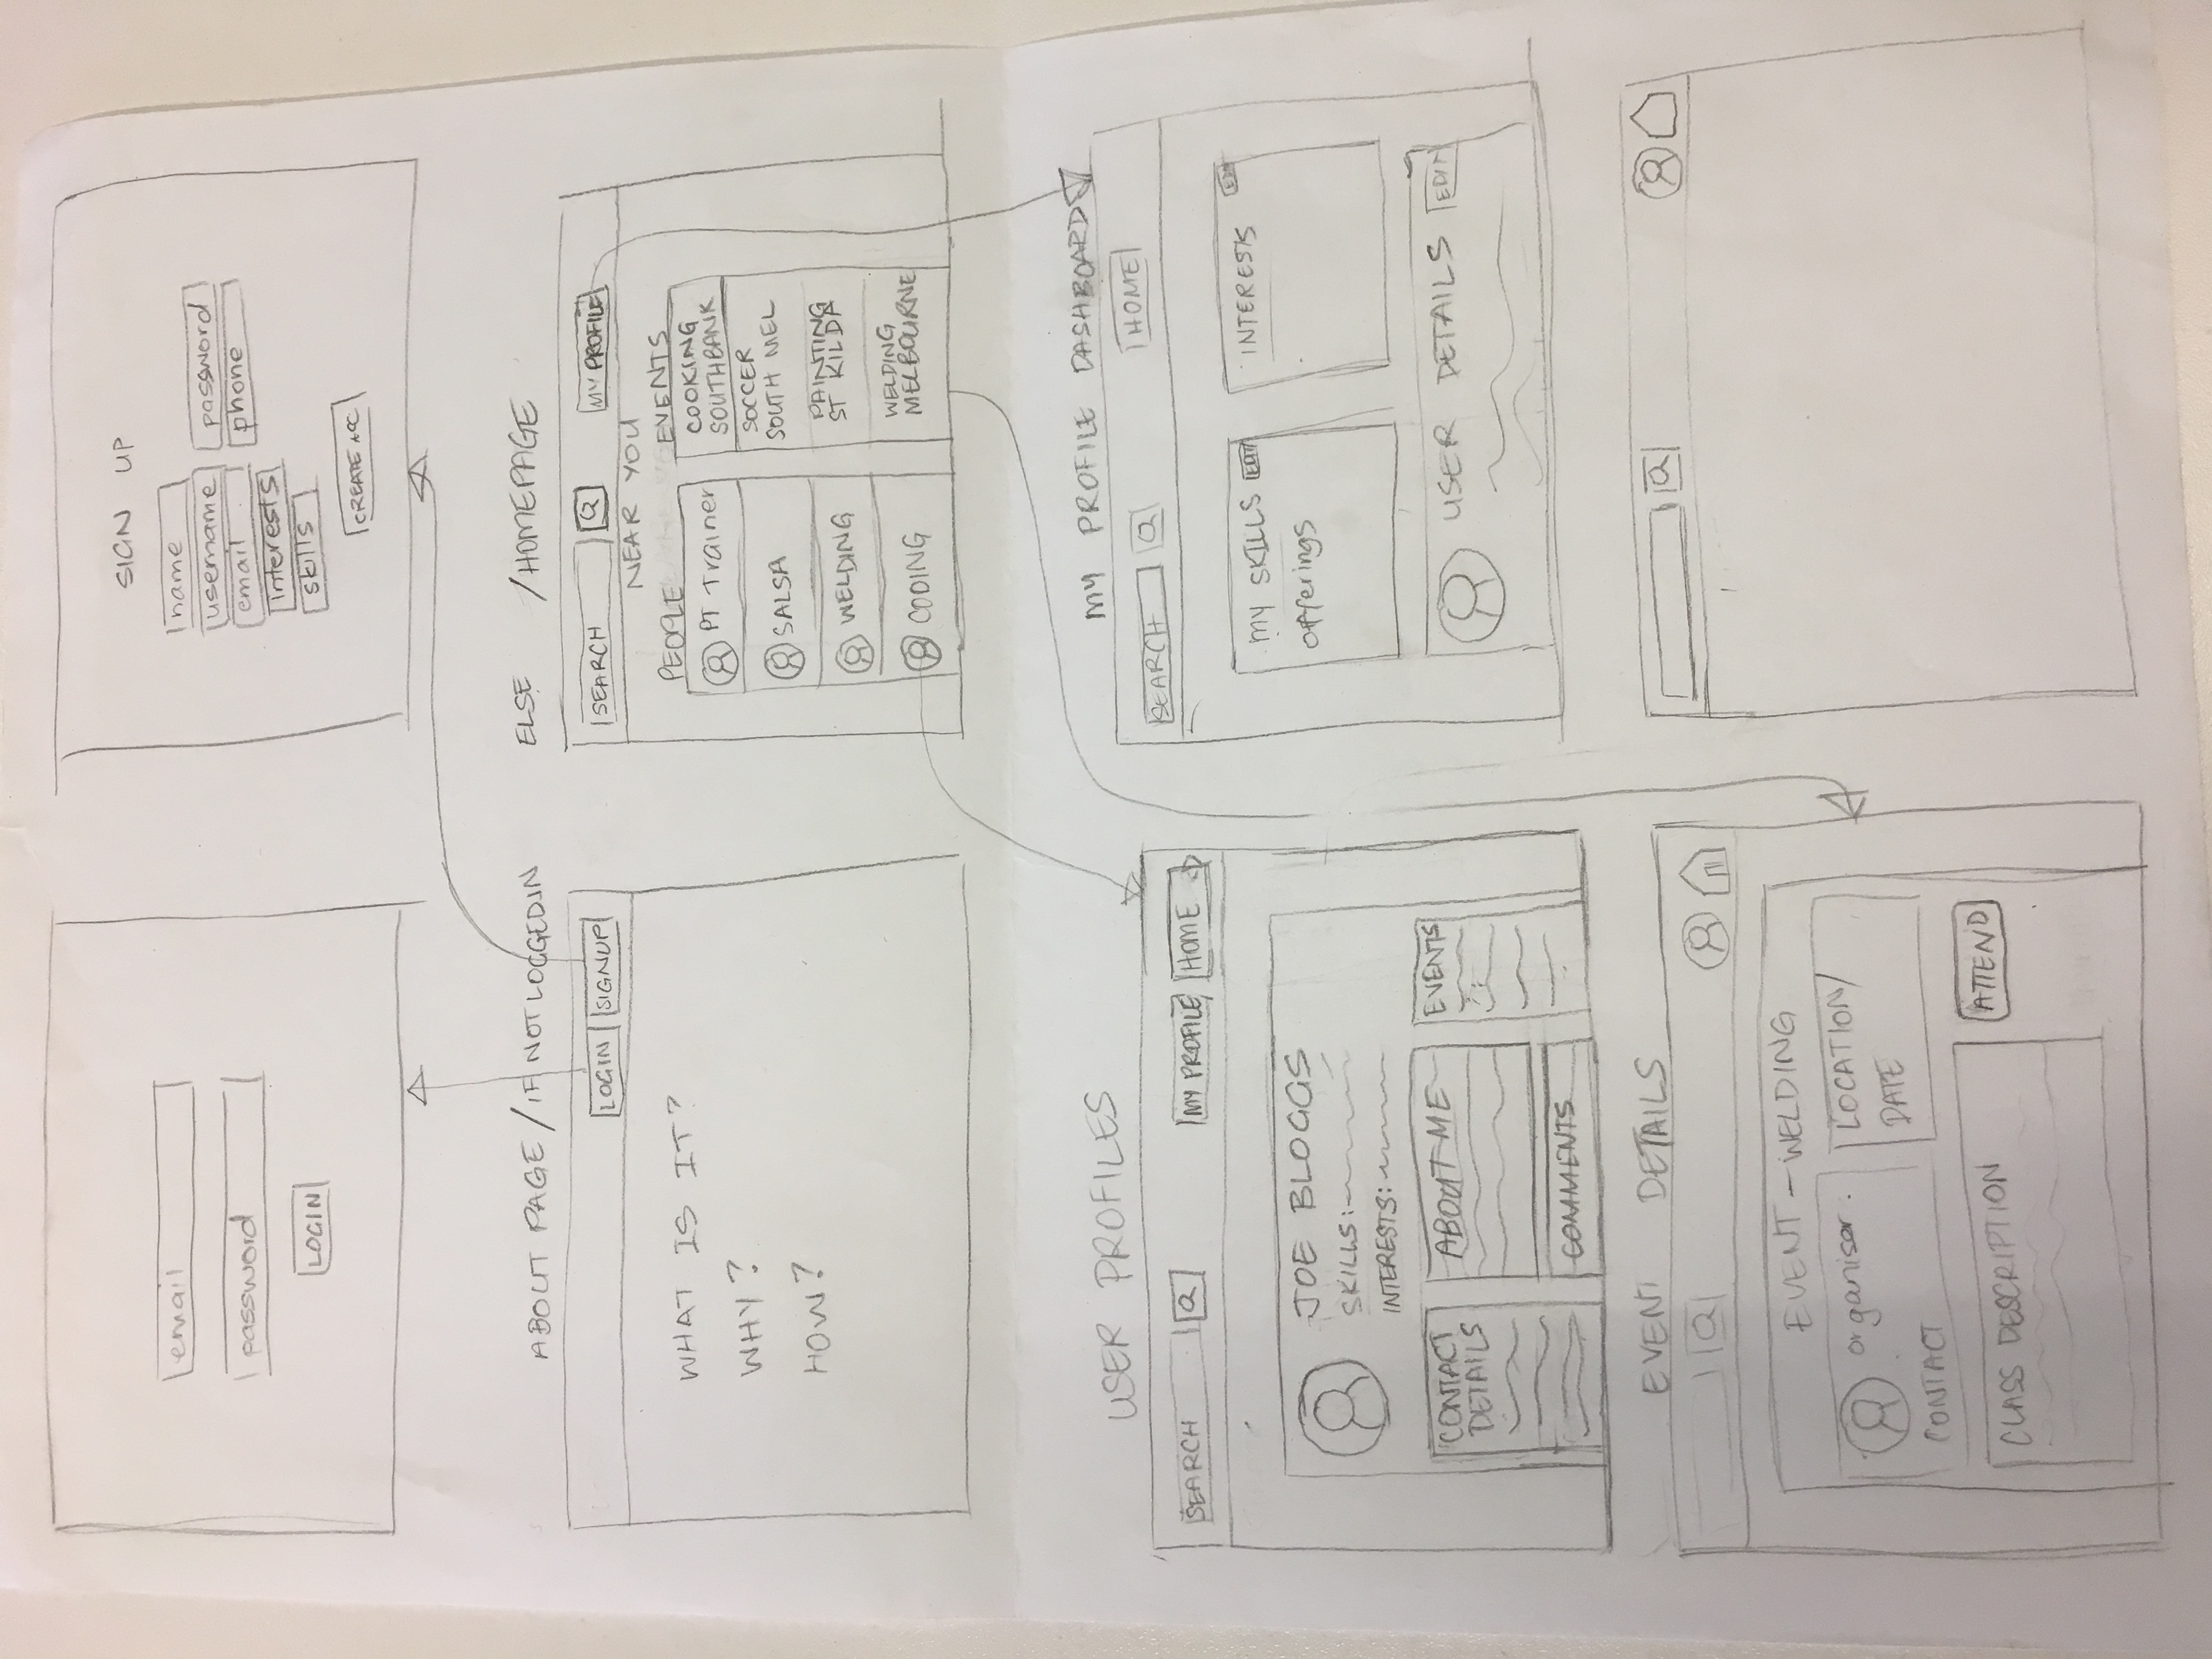 email
password
LOGIN
SIGN UP
name
username
password
email
phone
interests
skills
CREATE ACC
ABOUT PAGE / IF NOT LOGGED IN
LOGIN
SIGNUP
WHAT IS IT?
WHY?
HOW?
ELSE /HOMEPAGE
SEARCH
MY PROFILE
NEAR YOU
PEOPLE
PT Trainer
SALSA
WELDING
CODING
EVENTS
COOKING
SOUTHBANK
SOCCER
SOUTH MEL
PAINTING
ST KILDA
WELDING
MELBOURNE
USER PROFILES
SEARCH
MY PROFILE
HOME
JOE BLOGGS
SKILLS:
INTERESTS:
CONTACT
DETAILS
ABOUT ME
COMMENTS
EVENTS
MY PROFILE DASHBOARD
SEARCH
HOME
MY SKILLS
EDIT
offerings
INTERESTS
EDIT
USER DETAILS
EDIT
EVENT DETAILS
EVENT - WELDING
organiser.
CONTACT
LOCATION/
DATE
CLASS DESCRIPTION
ATTEND